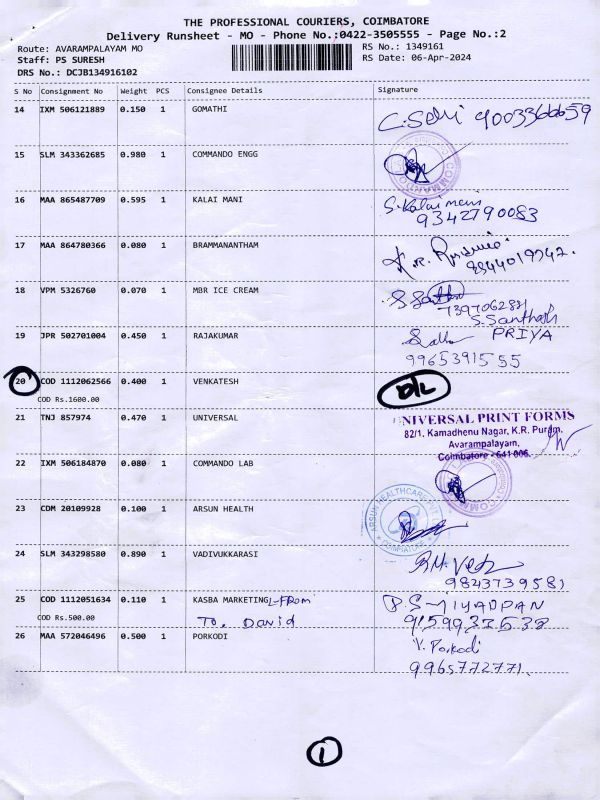 THE PROFESSIONAL COURIERS, COIMBATORE
Delivery Runsheet - MO - Phone No.:0422-3505555 - Page No.:2
Route: AVARAMPALAYAM MO RS No.: 1349161
Staff: PS SURESH RS Date: 06-Apr-2024
DRS No.: DCJB134916102
S No Consignment No Weight PCS Consignee Details Signature
14 IXM 506121889 0.150 1 GOMATHI
C. Selvi 9003366659
15 SLM 343362685 0.980 1 COMMANDO ENGG
16 MAA 865487709 0.595 1 KALAI MANI
S. Kalaimani
9342790083
17 MAA 864780366 0.080 1 BRAMMANANTHAM
18 VPM 5326760 0.070 1 MBR ICE CREAM
S. Santhosh
19 JPR 502701004 0.450 1 RAJAKUMAR
PRIYA
9965391555
20 COD 1112062566 0.400 1 VENKATESH
COD Rs.1600.00
D/L
21 TNJ 857974 0.470 1 UNIVERSAL
UNIVERSAL PRINT FORMS
82/1, Kamadhenu Nagar, K.R. Puram,
Avarampalayam,
Coimbatore - 641 006.
22 IXM 506184870 0.080 1 COMMANDO LAB
23 CDM 20109928 0.100 1 ARSUN HEALTH
ARSUN HEALTHCARE PVT
COIMBATORE
24 SLM 343298580 0.890 1 VADIVUKKARASI
9843739581
25 COD 1112051634 0.110 1 KASBA MARKETING L-FROM
COD Rs.500.00 To. David
26 MAA 572046496 0.500 1 PORKODI
V. Porkodi
9965772771
1